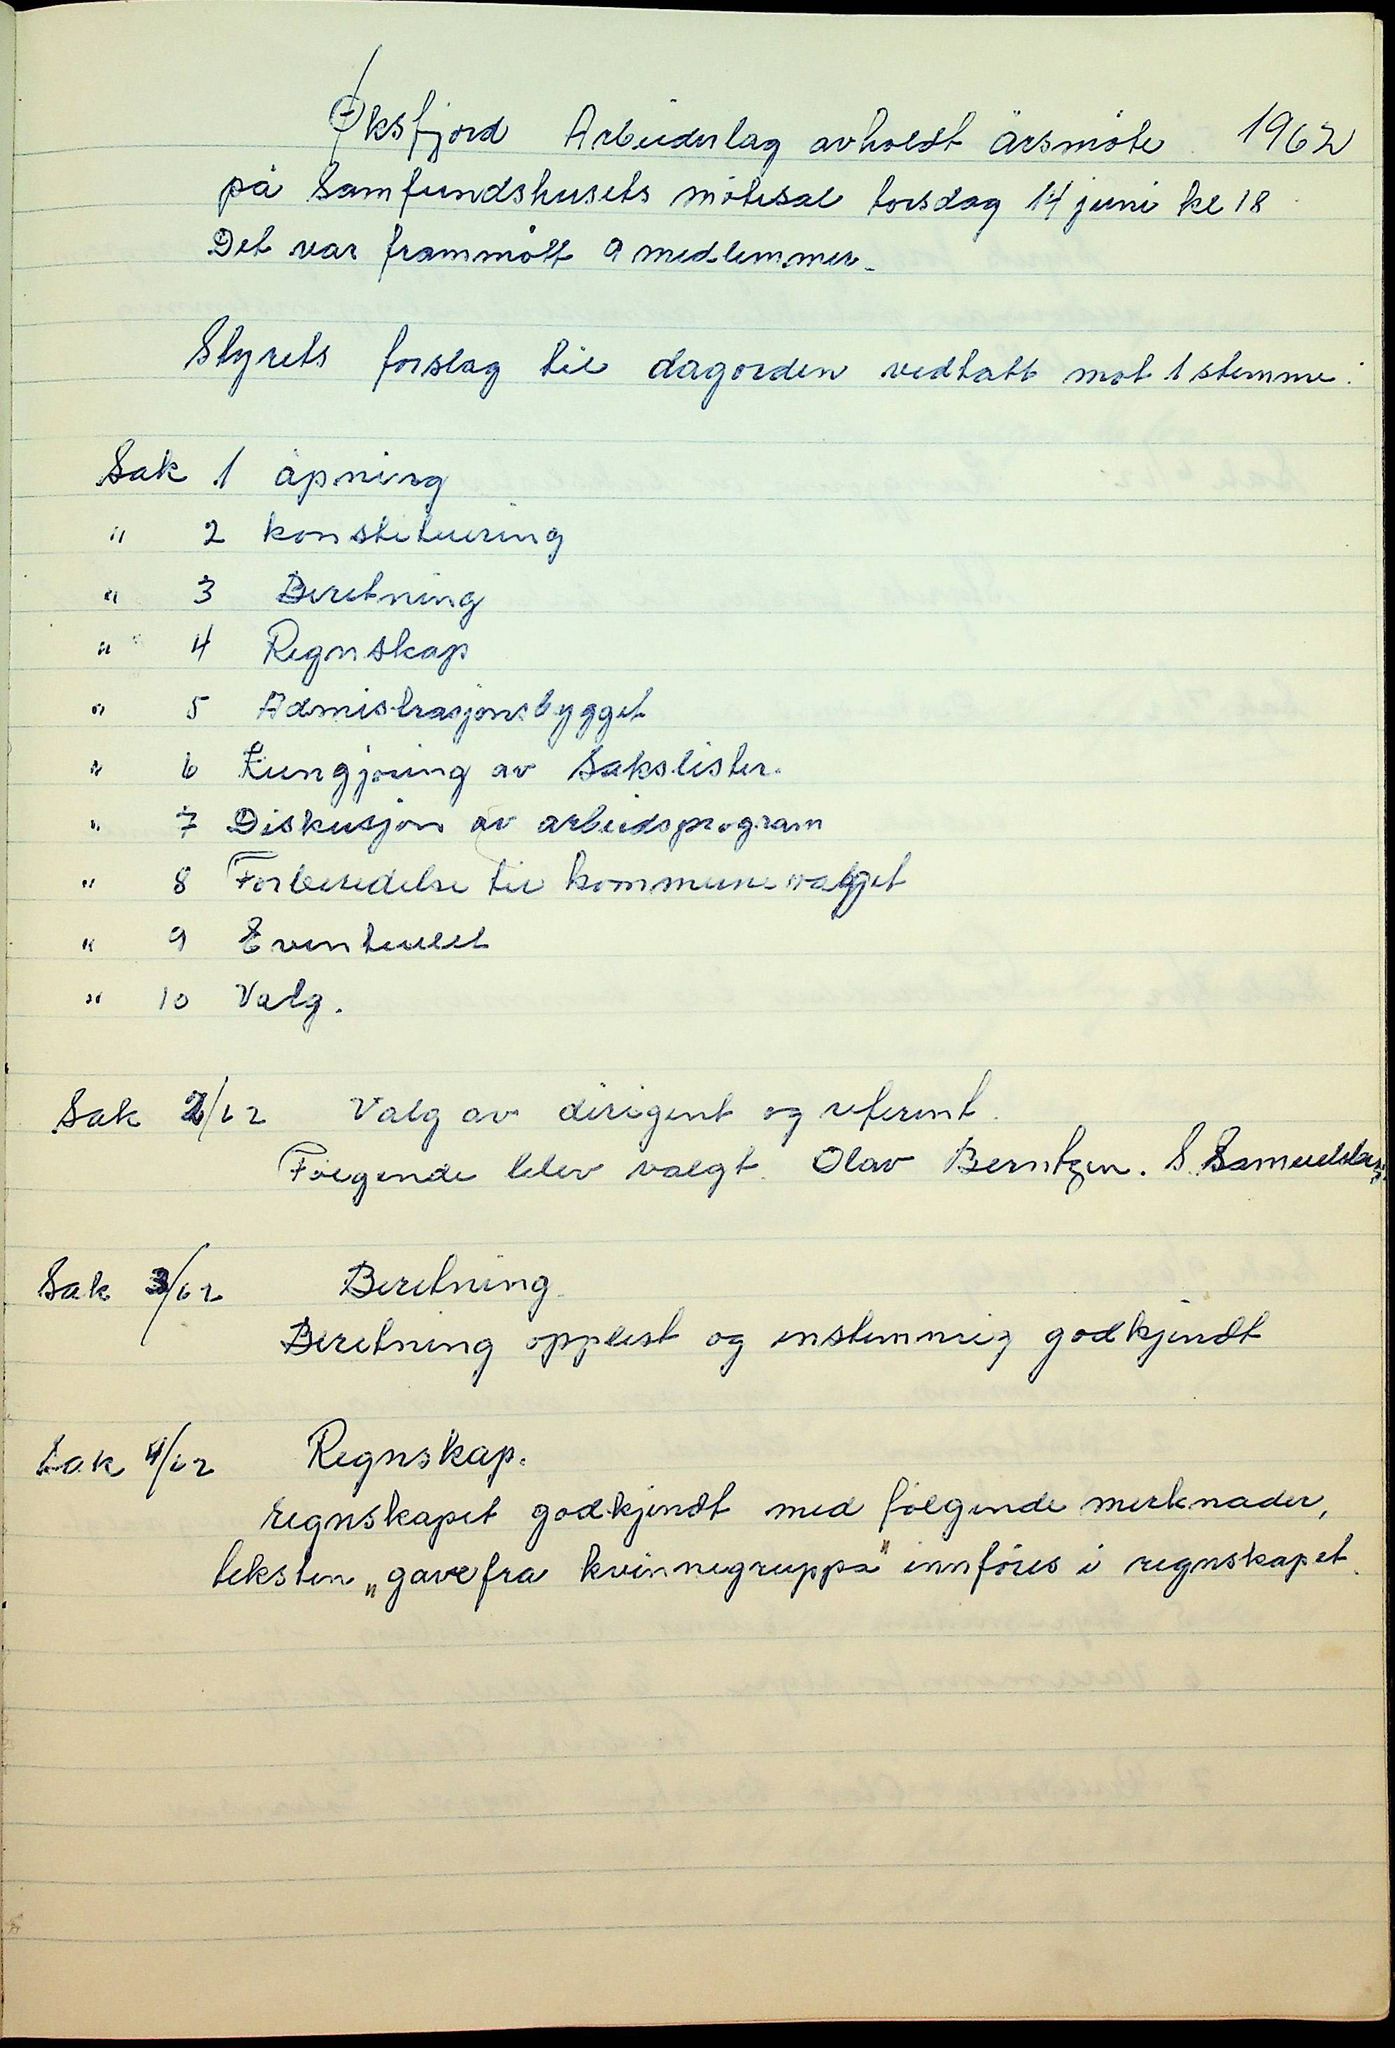 Øksfjord Arbeiderlag avholdt årsmöte 1962
på Samfundshusets mötesal torsdag 14 juni kl 18
Det var frammött 9 medlemmer.
Styrets forslag til dagorden vedtatt mot 1 stemme.
Sak 1 åpning
" 2 konstituering
" 3 Beretning
" 4 Regnskap
" 5 Admistrasjonsbygget
" 6 Kungjöring av Sakslister.
" 7 Diskusjon av arbeidsprogram
" 8 Forberedelse til kommunevalget
" 9 Eventuellt
" 10 Valg.
Sak 2/62 Valg av dirigent og referent.
Fölgende blev valgt. Olav Berntzen. S. Samuelsberg.
Sak 3/62 Beretning.
Beretning opplest og enstemmig godkjendt
Sak 4/62 Regnskap.
regnskapet godkjendt med fölgende merknader,
teksten „gave fra kvinnegruppa" innföres i regnskapet.